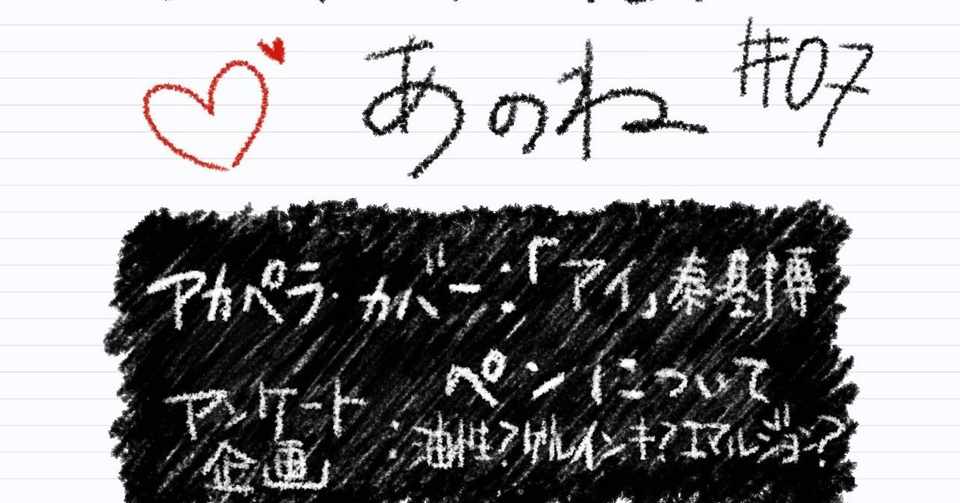 あのね #07
アカペラ・カバー:「アイ」秦基博
アンケート企画:ペンについて
油性?ゲルインキ?エマルジョン?